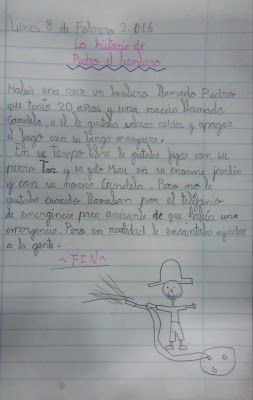 Lunes 8 de Febrero 2.016
La historia de
Pedro el bombero
Había una vez un bombero llamado Pedro
que tenía 20 años y una novia llamada
Candela, a él le gustaba salvar vidas y apagar
el fuego con su larga manguera.
En su tiempo libre le gustaba jugar con su
perro Toz y su gato Miau en su enorme jardín
y con su novia Candela. Pero no le
gustaba cuando llamaban por el teléfono
de emergencia para avisarle de que había una
emergencia. Pero en realidad le encantaba ayudar
a la gente.
~FIN~